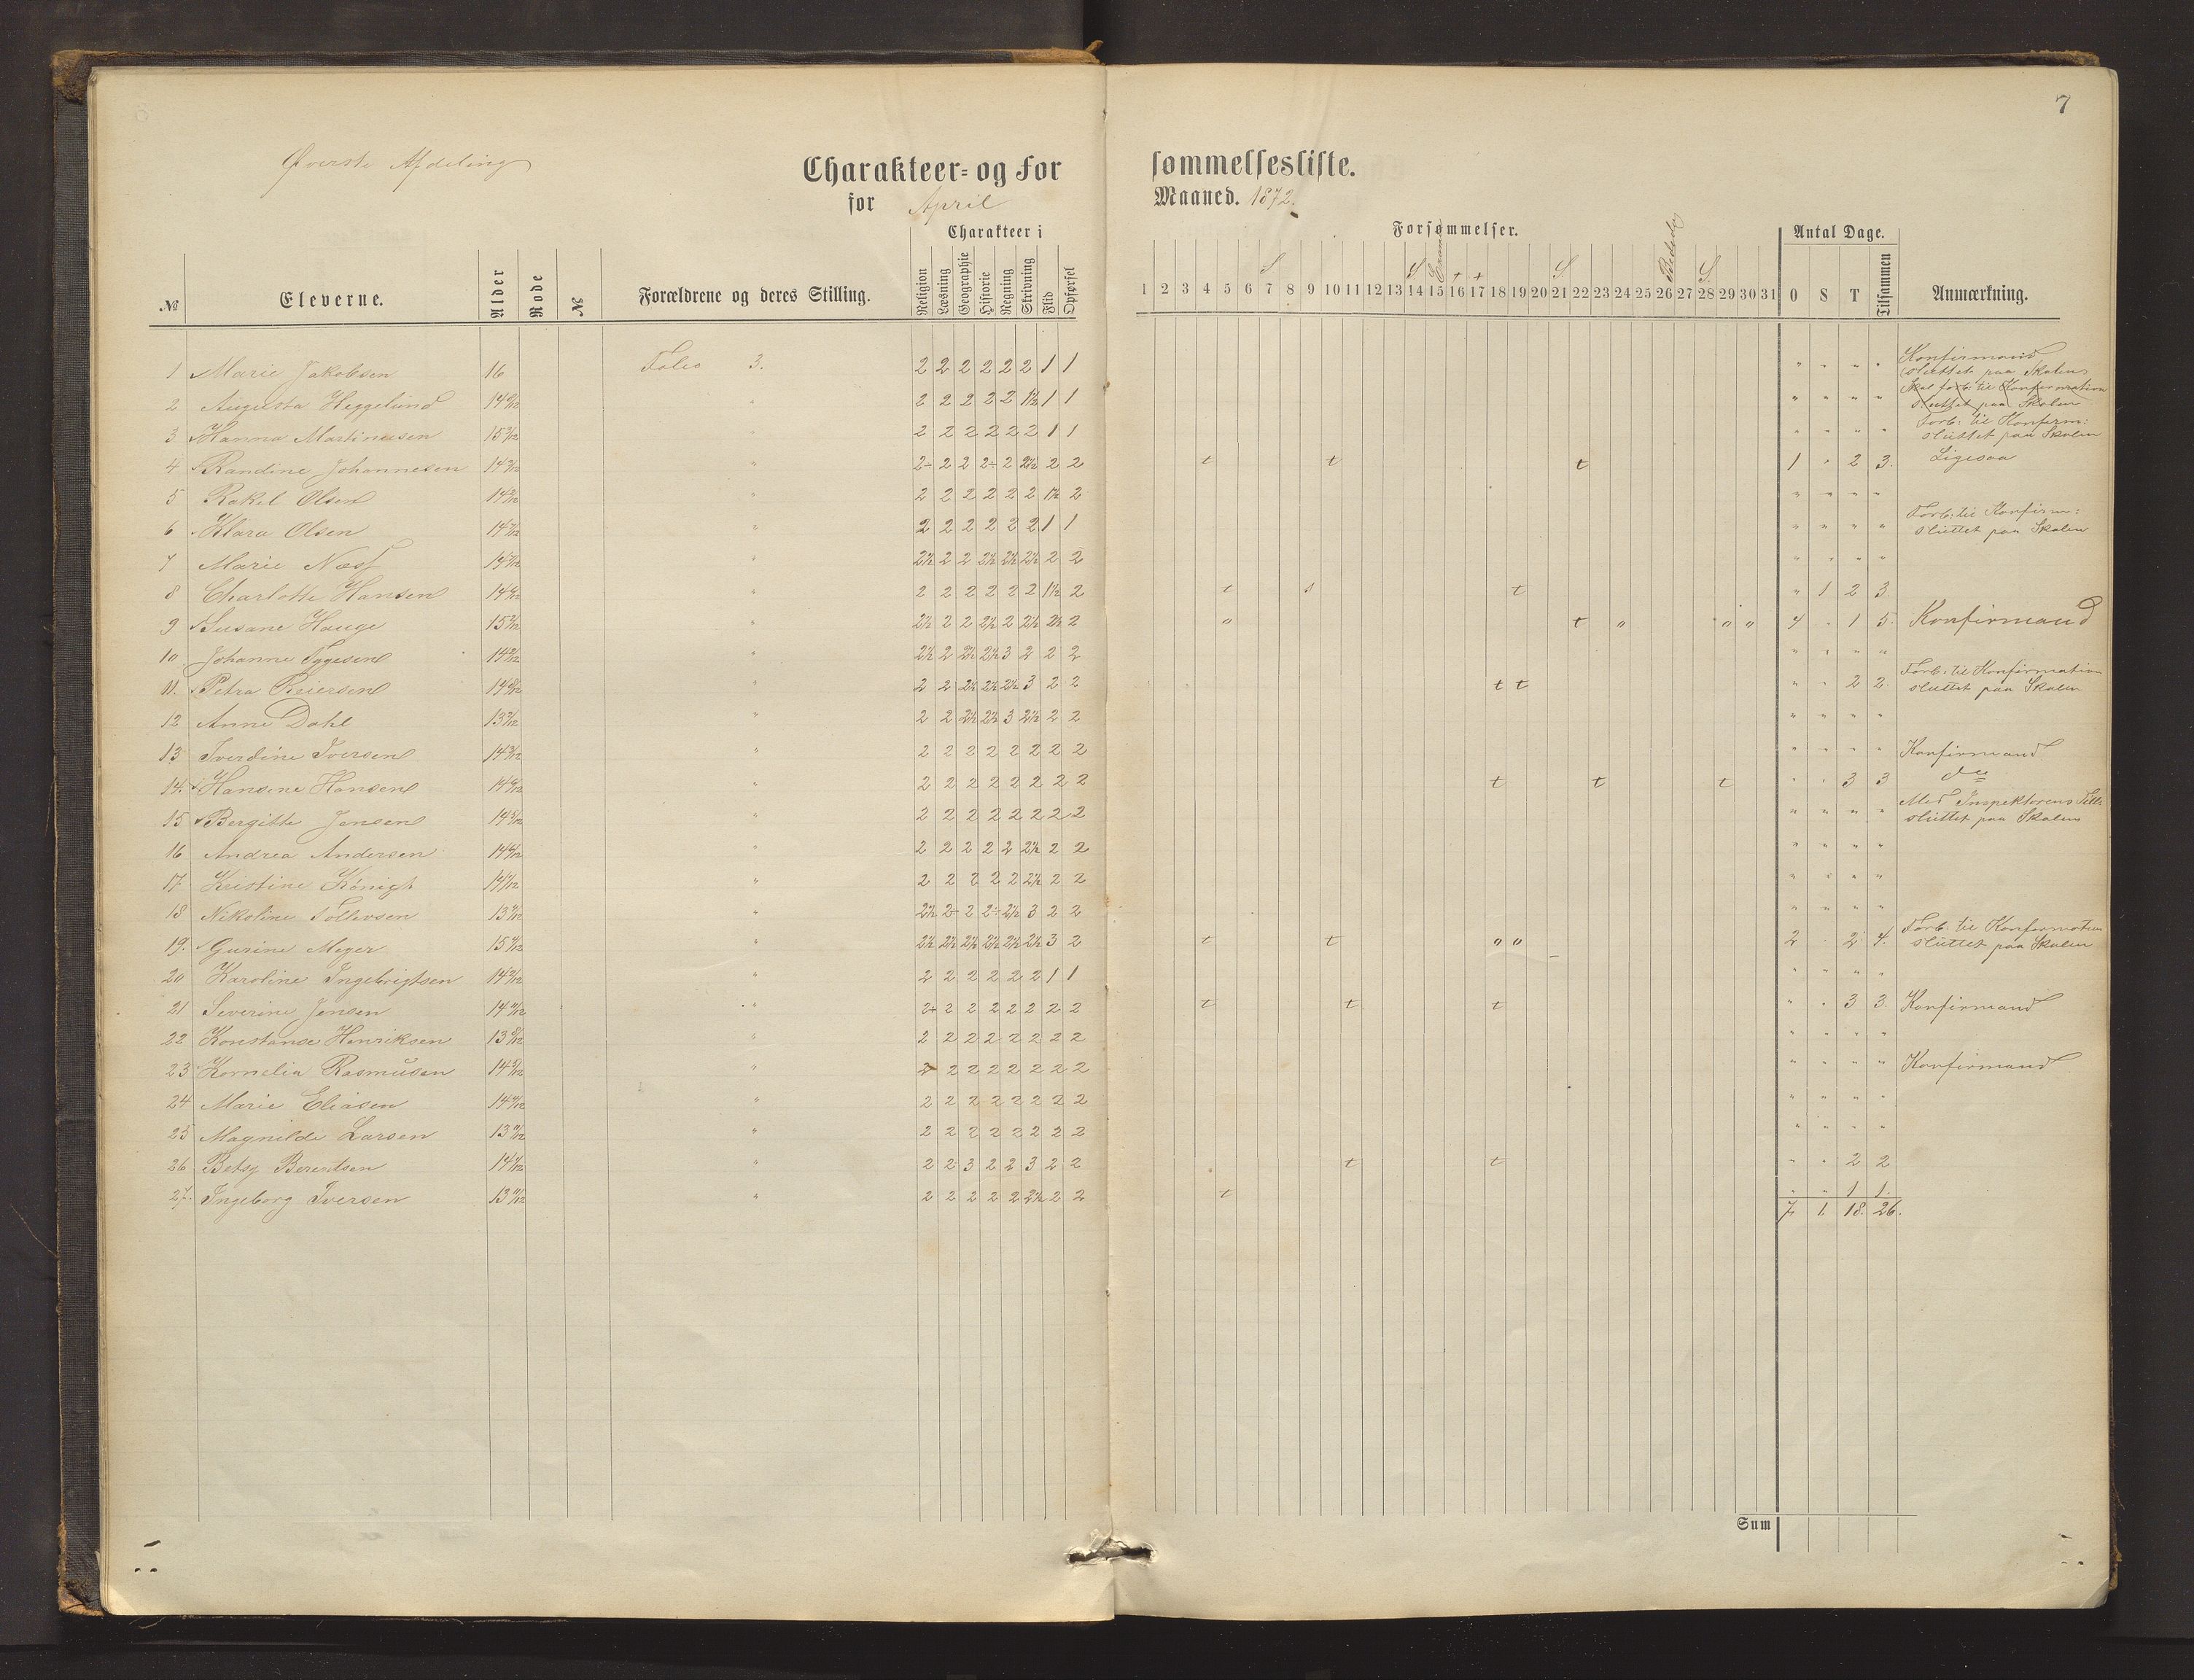 7
Øverste Afdeling
Charakteer- og Forsømmelsesliste.
for April Maaned. 1872.
Charakteer i Forsømmelser. Antal Dage.
S S Examen + + S. Bededag S.
№ Eleverne. Alder Rode № Forældrene og deres Stilling. Religion Læsning Geographie Historie Regning Skrivning Flid Opførsel 1 2 3 4 5 6 7 8 9 10 11 12 13 14 15 16 17 18 19 20 21 22 23 24 25 26 27 28 29 30 31 O S T Tilsammen Anmærkning.
1 Marie Jakobsen 16 Folio 3. 2 2 2 2 2 2 1 1 " " " " Konfirmand sluttet paa Skolen
2 Augusta Heggelund " 2 2 2 2 2 1½ 1 1 " " " " Skal forb: til Konfirmation sluttet paa Skolen
3 Hanna Martinusen " 2 2 2 2 2 2 1 1 " " " " Forb: til Konfirm: sluttet paa Skolen
4 Randine Johannesen " 2÷ 2 2 2÷ 2 2½ 2 2 t t t 1 " 2 3. Ligesaa
5 Rakel Olsen " 2 2 2 2 2 2 1½ 2 " " " "
6 Klara Olsen " 2 2 2 2 2 2 1 1 " " " " Forb: til Konfirm: sluttet paa Skolen
7 Marie Næss " 2½ 2 2 2½ 2½ 2½ 2 2 " " " "
8 Charlotte Hansen " 2 2 2 2 2 2 1½ 2 t s t " 1 2 3
9 Susane Hauge " 2½ 2 2 2½ 2 2½ 2½ 2 o t o o o 4 " 1 5. Konfirmand
10 Johanne Tygesen " 2½ 2 2½ 2½ 3 2 2 2 " " " "
11. Petra Reiersen " 2 2 2½ 2½ 2½ 3 2 2 t t " " 2 2 Forb: til Konfirmation sluttet paa Skolen
12 Anne Dahl " 2 2 2½ 2½ 3 2½ 2 2 " " " "
13 Iverdine Iversen " 2 2 2 2 2 2 2 2 " " " " Konfirmand
14. Hansine Hansen " 2 2 2 2 2 2 2 2 t t t " " 3 3 do
15 Bergitte Jensen " 2 2 2 2 2 2 2 2 " " " " Med Inspektorens Till: sluttet paa Skolen
16 Andrea Andersen " 2 2 2 2 2 2½ 2 2 " " " "
17 Kristine Königt " 2 2 2 2 2 2½ 2 2 " " " "
18 Nikoline Tollevsen " 2½ 2÷ 2 2÷ 2½ 3 2 2 " " " "
19. Gurine Meyer " 2½ 2½ 2½ 2½ 2½ 2½ 3 2 t t o o 2 " 2 4. Forb: til Konfirmation sluttet paa Skolen
20 Karoline Ingebrigtsen " 2 2 2 2 2 2 1 1 " " " "
21 Severine Jensen " 2÷ 2 2 2 2 2 2 2 t t t " " 3 3. Konfirmand
22 Konstanse Henriksen " 2 2 2 2 2 2 2 2 " " " "
23 Kornelia Rasmusen " 2 2 2 2 2 2 2 2 " " " " Konfirmand
24 Marie Eliasen " 2 2 2 2 2 2 2 2 " " " "
25 Magnilde Larsen " 2 2 2 2 2 2 2 2 " " " "
26 Betsy Berentsen " 2 2 3 2 2 3 2 2 t t " " 2 2
27. Ingeborg Iversen " 2 2 2 2 2 2½ 2 2 t " " 1 1.
7 1. 18. 26.
Sum